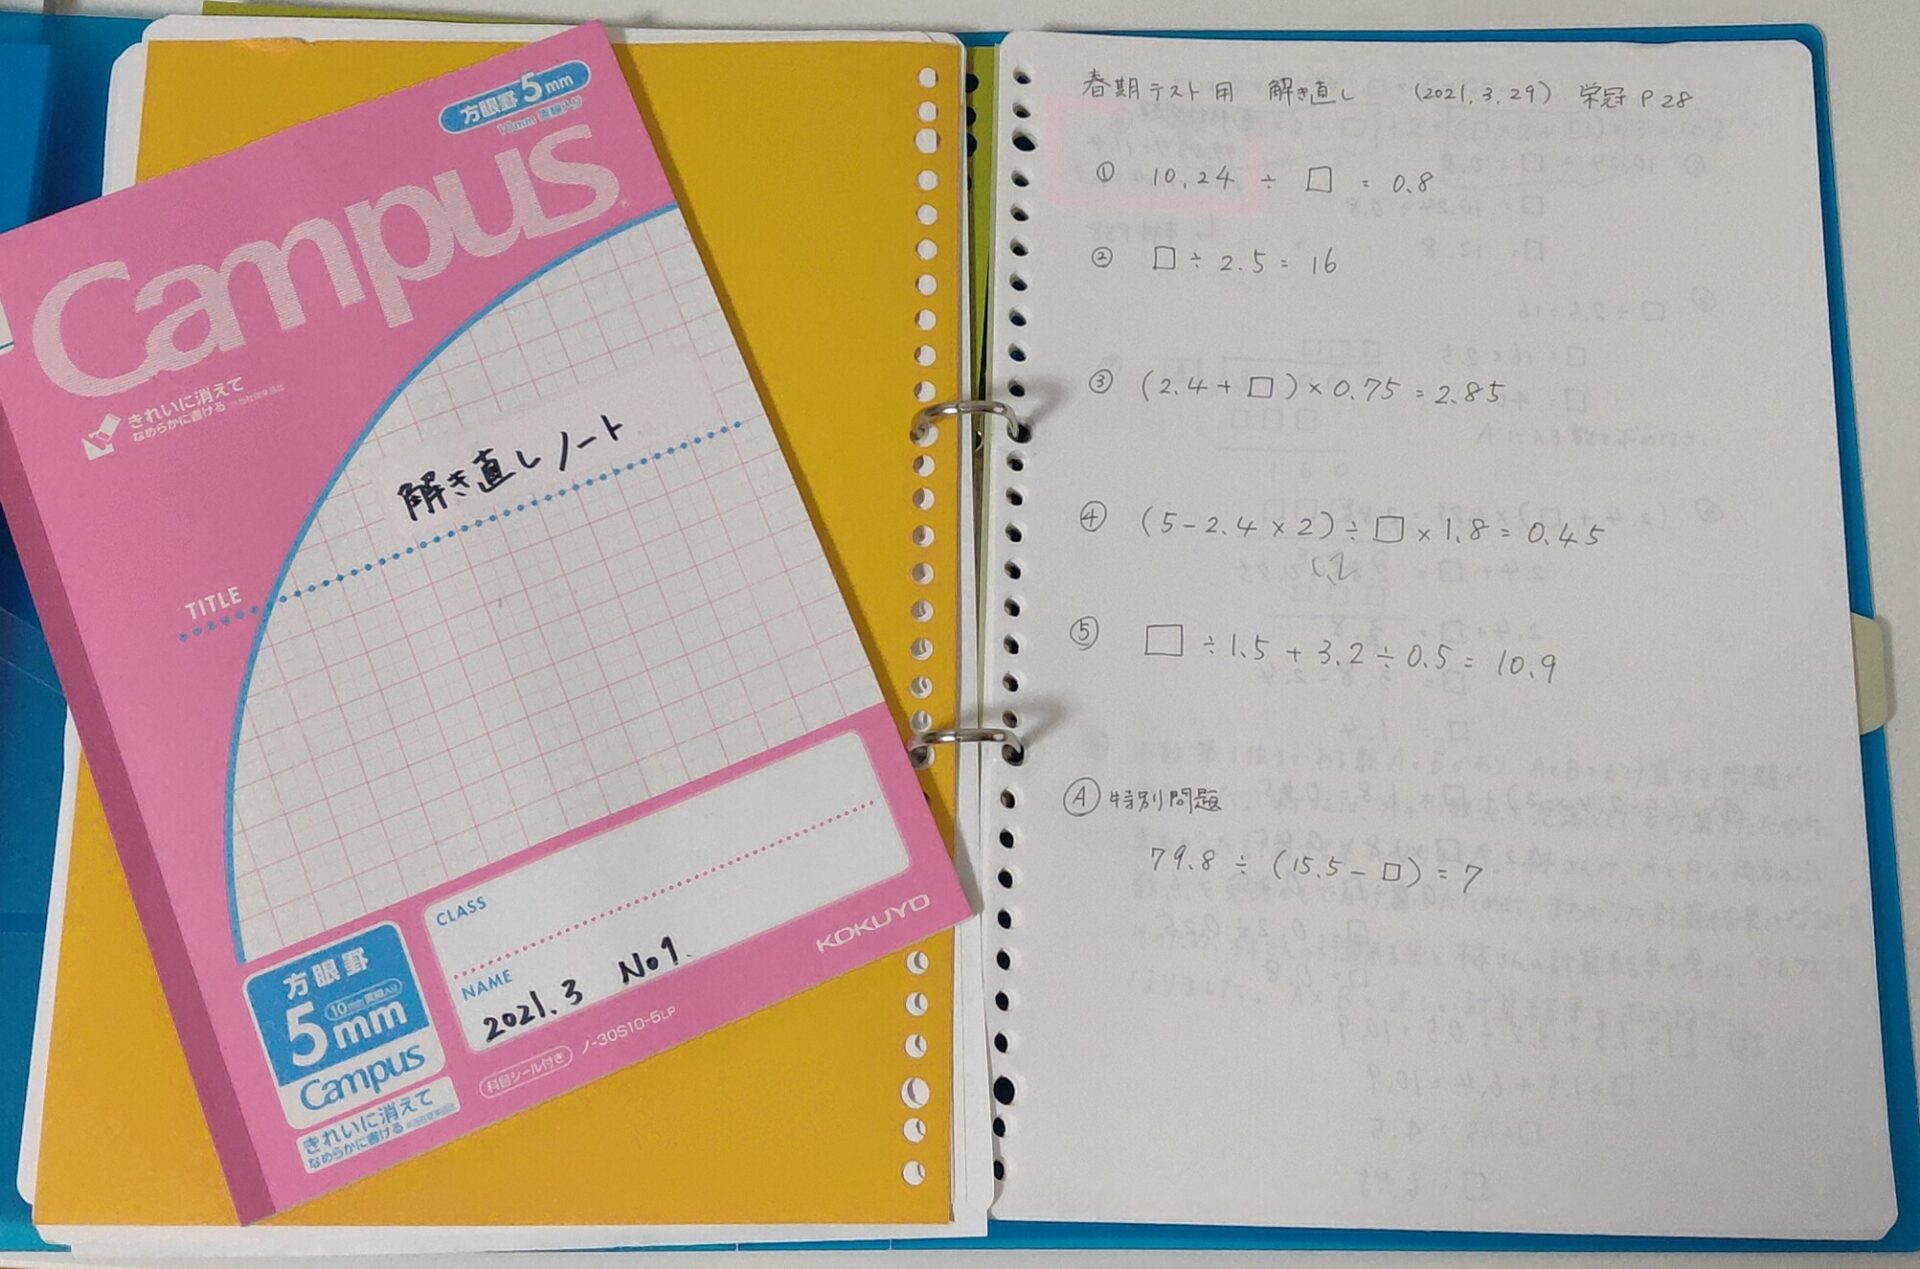 方眼罫 5mm
10mm 実線入り
Campus
きれいに消えて
なめらかに書ける
解き直しノート
TITLE
CLASS
NAME
2021.3 No1.
KOKUYO
方眼罫
10mm実線入り
5mm
Campus
きれいに消えて
なめらかに書ける
科目シール付き ノ-30S10-5LP
春期テスト用 解き直し (2021.3.29) 栄冠 P28
① 10.24 ÷ □ = 0.8
② □ ÷ 2.5 = 16
③ (2.4 + □) × 0.75 = 2.85
④ (5 - 2.4 × 2) ÷ □ × 1.8 = 0.45
⑤ □ ÷ 1.5 + 3.2 ÷ 0.5 = 10.9
Ⓐ 特別問題
79.8 ÷ (15.5 - □) = 7